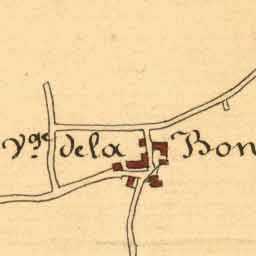 Vge. de la Bon